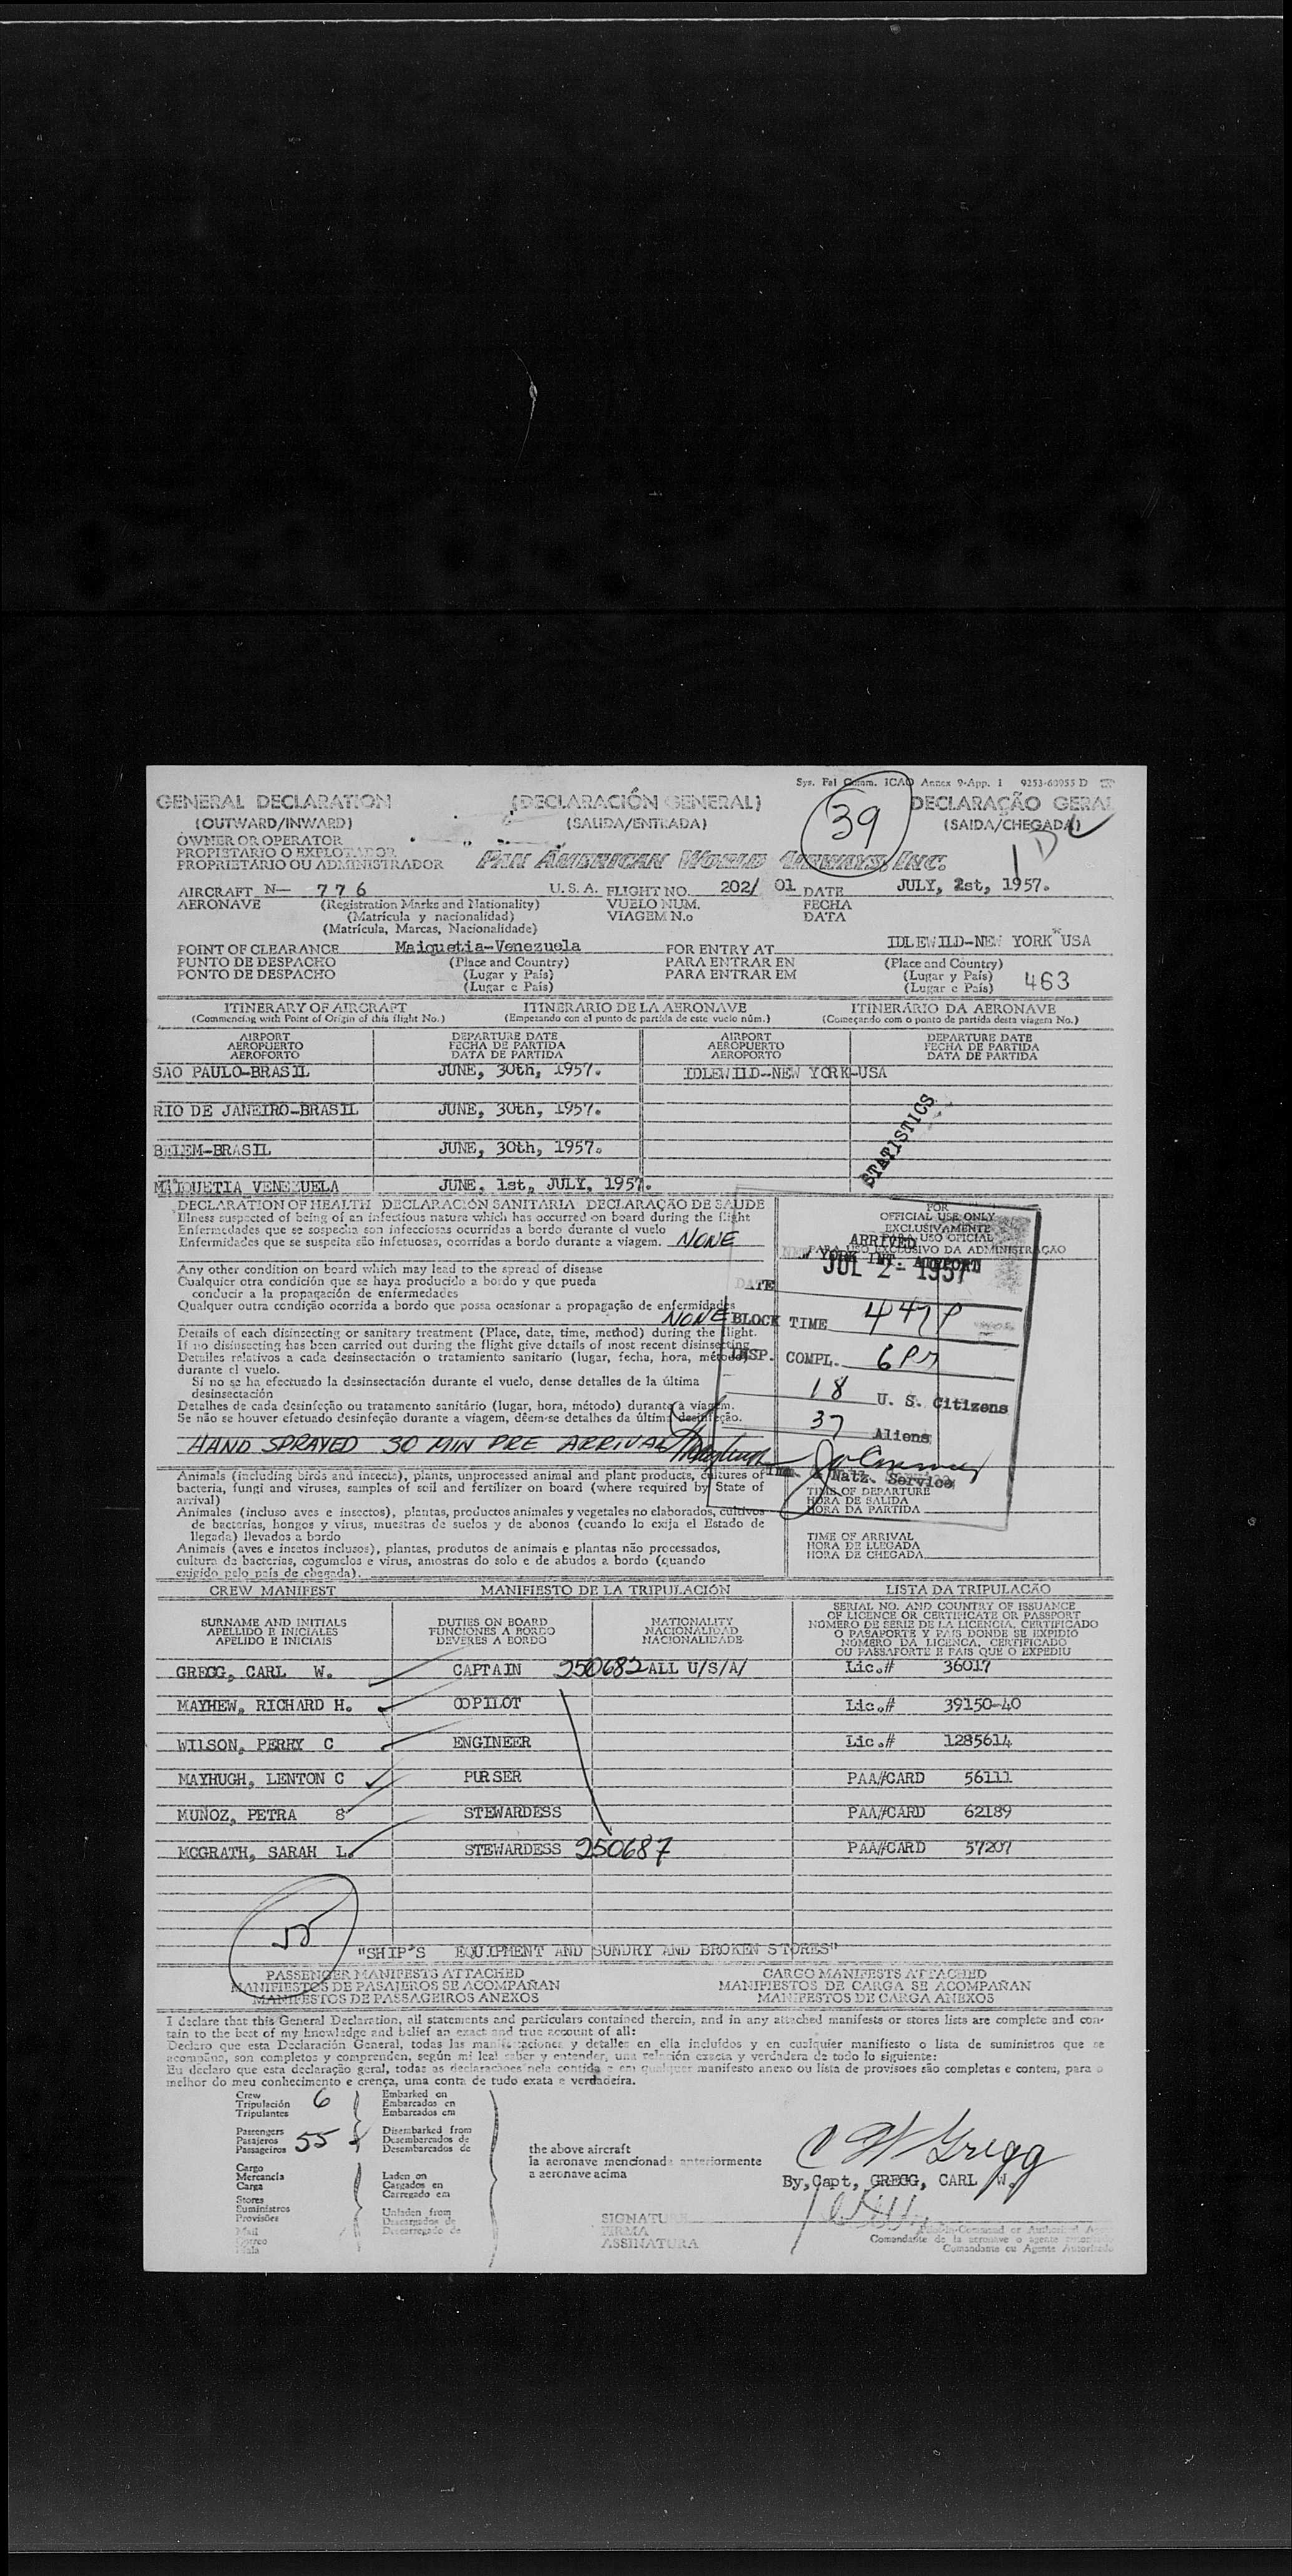 Sys. Fal Comm. ICAO Annex 9-App. 1 9253-60955 D
GENERAL DECLARATION (DECLARACIÓN GENERAL) DECLARAÇÃO GERAL
(OUTWARD/INWARD) (SALIDA/ENTRADA) (SAIDA/CHEGADA)
39
OWNER OR OPERATOR
PROPIETARIO O EXPLOTADOR
PROPRIETÁRIO OU ADMINISTRADOR
PAN AMERICAN WORLD AIRWAYS, INC.
AIRCRAFT N— 776 U.S.A. FLIGHT NO. 202/ 01 DATE JULY, 2st, 1957.
AERONAVE (Registration Marks and Nationality) VUELO NUM. FECHA
(Matrícula y nacionalidad) VIAGEM N.o DATA
(Matrícula, Marcas, Nacionalidade)
POINT OF CLEARANCE Maiquetia-Venezuela FOR ENTRY AT IDLEWILD-NEW YORK USA
PUNTO DE DESPACHO (Place and Country) PARA ENTRAR EN (Place and Country)
PONTO DE DESPACHO (Lugar y País) PARA ENTRAR EM (Lugar y País)
(Lugar e País) (Lugar e País) 463
ITINERARY OF AIRCRAFT ITINERARIO DE LA AERONAVE ITINERÁRIO DA AERONAVE
(Commencing with Point of Origin of this flight No.) (Empezando con el punto de partida de este vuelo núm.) (Começando com o ponto de partida desta viagem No.)
AIRPORT DEPARTURE DATE AIRPORT DEPARTURE DATE
AEROPUERTO FECHA DE PARTIDA AEROPUERTO FECHA DE PARTIDA
AEROPORTO DATA DE PARTIDA AEROPORTO DATA DE PARTIDA
SAO PAULO-BRASIL JUNE, 30th, 1957. IDLEWILD-NEW YORK-USA
RIO DE JANEIRO-BRASIL JUNE, 30th, 1957.
BELEM-BRASIL JUNE, 30th, 1957.
MAIQUETIA VENEZUELA JUNE, 1st, JULY, 1957.
STATISTICS
DECLARATION OF HEALTH DECLARACIÓN SANITARIA DECLARAÇÃO DE SAUDE
Illness suspected of being of an infectious nature which has occurred on board during the flight
Enfermedades que se sospecha son infecciosas ocurridas a bordo durante el vuelo
Enfermidades que se suspeita são infetuosas, ocorridas a bordo durante a viagem. NONE
Any other condition on board which may lead to the spread of disease
Cualquier otra condición que se haya producido a bordo y que pueda
conducir a la propagación de enfermedades
Qualquer outra condição ocorrida a bordo que possa ocasionar a propagação de enfermidades
NONE
Details of each disinsecting or sanitary treatment (Place, date, time, method) during the flight.
If no disinsecting has been carried out during the flight give details of most recent disinsecting
Detalles relativos a cada desinsectación o tratamiento sanitario (lugar, fecha, hora, método)
durante el vuelo.
Si no se ha efectuado la desinsectación durante el vuelo, dense detalles de la última
desinsectación
Detalhes de cada desinfeção ou tratamento sanitário (lugar, hora, método) durante a viagem.
Se não se houver efetuado desinfeção durante a viagem, dêem-se detalhes da última desinfeção.
HAND SPRAYED 30 MIN PRE ARRIVAL
Animals (including birds and insects), plants, unprocessed animal and plant products, cultures of
bacteria, fungi and viruses, samples of soil and fertilizer on board (where required by State of
arrival)
Animales (incluso aves e insectos), plantas, productos animales y vegetales no elaborados, cultivos
de bacterias, hongos y virus, muestras de suelos y de abonos (cuando lo exija el Estado de
llegada) llevados a bordo
Animais (aves e insetos inclusos), plantas, produtos de animais e plantas não processados,
cultura de bacterias, cogumelos e virus, amostras do solo e de abudos a bordo (quando
exigido pelo país de chegada).
FOR
OFFICIAL USE ONLY
EXCLUSIVAMENTE
PARA USO OFICIAL
PARA USO EXCLUSIVO DA ADMINISTRAÇÃO
ARRIVED
NEW YORK INT. AIRPORT
DATE JUL 2 - 1957
BLOCK TIME 447P
INSP. COMPL. 6 PM
18 U. S. Citizens
37 Aliens
Imm. & Natz. Service
TIME OF DEPARTURE
HORA DE SALIDA
HORA DA PARTIDA
TIME OF ARRIVAL
HORA DE LLEGADA
HORA DE CHEGADA
CREW MANIFEST MANIFIESTO DE LA TRIPULACIÓN LISTA DA TRIPULACÃO
SURNAME AND INITIALS DUTIES ON BOARD NATIONALITY SERIAL NO. AND COUNTRY OF ISSUANCE
APELLIDO E INICIALES FUNCIONES A BORDO NACIONALIDAD OF LICENCE OR CERTIFICATE OR PASSPORT
APELIDO E INICIAIS DEVERES A BORDO NACIONALIDADE NÚMERO DE SERIE DE LA LICENCIA, CERTIFICADO
O PASAPORTE Y PAIS DONDE SE EXPIDIO
NÚMERO DA LICENCA, CERTIFICADO
OU PASSAFORTE E PAIS QUE O EXPEDIU
GREGG, CARL W. CAPTAIN 250682 ALL U/S/A/ Lic.# 36017
MAYHEW, RICHARD H. COPILOT Lic.# 39150-40
WILSON, PERRY C ENGINEER Lic.# 1285614
MAYHUGH, LENTON C PURSER PAA#CARD 56111
MUÑOZ, PETRA S STEWARDESS PAA#CARD 62189
MCGRATH, SARAH L. STEWARDESS 250687 PAA#CARD 57207
55
"SHIP'S EQUIPMENT AND SUNDRY AND BROKEN STORES"
PASSENGER MANIFESTS ATTACHED CARGO MANIFESTS ATTACHED
MANIFIESTOS DE PASAJEROS SE ACOMPAÑAN MANIFIESTOS DE CARGA SE ACOMPAÑAN
MANIFESTOS DE PASSAGEIROS ANEXOS MANIFESTOS DE CARGA ANEXOS
I declare that this General Declaration, all statements and particulars contained therein, and in any attached manifests or stores lists are complete and con-
tain to the best of my knowledge and belief an exact and true account of all:
Declaro que esta Declaración General, todas las manifestaciones y detalles en ella incluídos y en cualquier manifiesto o lista de suministros que se
acompañe, son completos y comprenden, según mi leal saber y entender, una relación exacta y verdadera de todo lo siguiente:
Eu declaro que esta declaração geral, todas as declarações nela contida e em qualquer manifesto anexo ou lista de provisoes são completas e contem, para o
melhor do meu conhecimento e crença, uma conta de tudo exata e verdadeira.
Crew Embarked on
Tripulación 6 Embarcados en
Tripulantes Embarcados em
Passengers Disembarked from
Pasajeros 55 Desembarcados de
Passageiros Desembarcados de
the above aircraft
la aeronave mencionada anteriormente
a aeronave acima
Cargo
Mercancía Laden on
Carga Cargados en
Stores Carregado em
Suministros Unladen from
Provisões Descargados de
Mail Descarregado de
Correo
Mala
C W Gregg
By, Capt, GREGG, CARL W.
SIGNATURE
FIRMA
ASSINATURA
Pilot-in-Command or Authorized Agent
Comandante de la aeronave o agente autorizado
Comandante ou Agente Autorizado